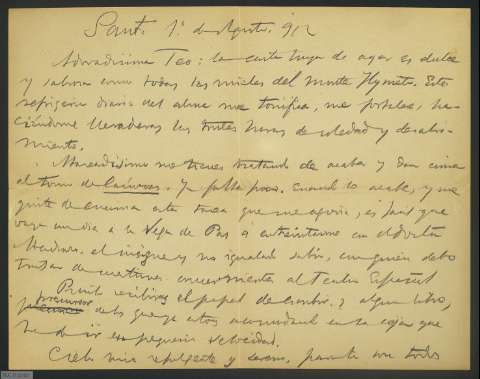 Sant. 1º de Agosto, 912
Adoradísima Teo: la carta tuya de ayer es dulce
y sabrosa como todas las mieles del monte Hymeto. Este
refrigerio diario del alma me tonifica, me fortalece, ha-
ciéndome llevaderas las tristes horas de soledad y desabri-
miento.
Atareadísimo me tienes tratando de acabar y dar cima
al tomo de Cánovas. Ya falta poco. Cuando lo acabe, y me
quite de encima esta tarea que me agovia, es fácil que
vaya un día a la Vega de Pas a entrevistarme con el Doctor
Madrazo, el insigne y no igualado sabio, con quien debo
tratar de cuestiones concernientes al Teatro Español
Pronto recibirás el papel de escribir, y algun libro,
procurar de los que yo estoy acumulando en la caja que
ha de ir en pequeña velocidad.
Cielo mío refulgente y sereno, ponte con todos